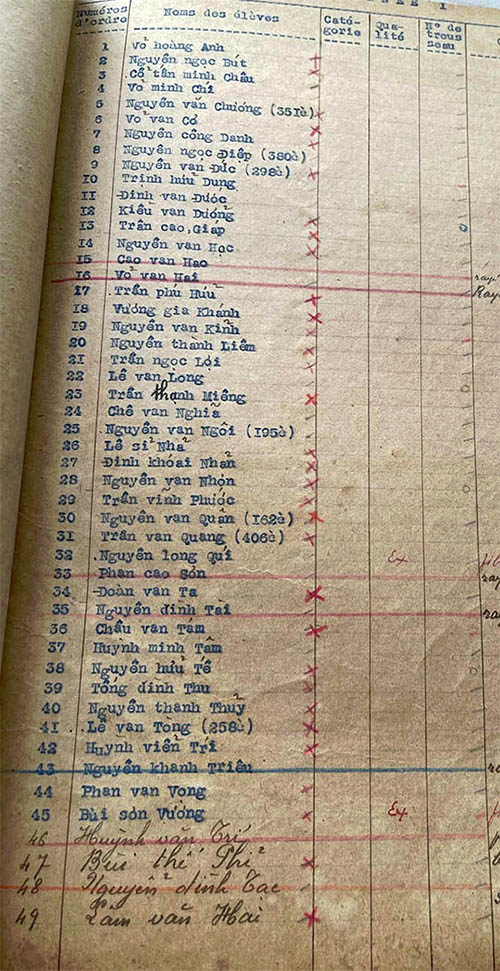 NÉE I
Numéros d'ordre Noms des élèves Caté-gorie Qua-lité N° de trous seau
1 Võ hoàng Anh
2 Nguyễn ngọc Bút
3 Cổ tấn minh Châu
4 Võ minh Chí
5 Nguyễn văn Chương (351è)
6 Võ văn Cỏ
7 Nguyễn công Danh
8 Nguyễn ngọc Điệp (380è)
9 Nguyễn văn Đức (298è)
10 Trinh hữu Dung
11 Đinh văn Được
12 Kiều văn Dưỡng
13 Trần cao Giáp
14 Nguyễn văn Học
15 Cao văn Hao
16 Võ văn Hai
17 Trần phú Hữu
18 Vương gia Khánh
19 Nguyễn văn Kỉnh
20 Nguyễn thành Liêm
21 Trần ngọc Lội
22 Lê văn Long
23 Trần thạnh Miêng
24 Chê văn Nghĩa
25 Nguyễn văn Ngôi (195è)
26 Lê sĩ Nhã
27 Đinh khóai Nhạn
28 Nguyễn văn Nhọn
29 Trần vĩnh Phước
30 Nguyễn văn Quận (162è)
31 Trần văn Quang (406è)
32 Nguyễn long Quí Ex
33 Phan cao Sơn
34 Đoàn văn Ta
35 Nguyễn đình Tài
36 Châu văn Tám
37 Huỳnh minh Tâm
38 Nguyễn hữu Tế
39 Tống đình Thu
40 Nguyễn thanh Thuỷ
41 Lê văn Tòng (258è)
42 Huỳnh viễn Trí
43 Nguyễn khánh Triêu
44 Phan văn Vong
45 Bùi sơn Vương Ex
46 Huỳnh văn Trí
47 Bùi thế Phi
48 Nguyễn đình Tac
49 Lâm văn Hai